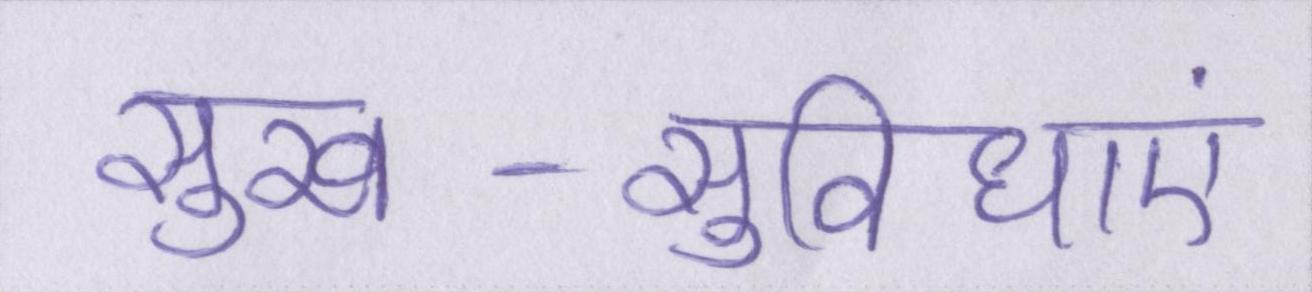 सुख - सुविधाएं